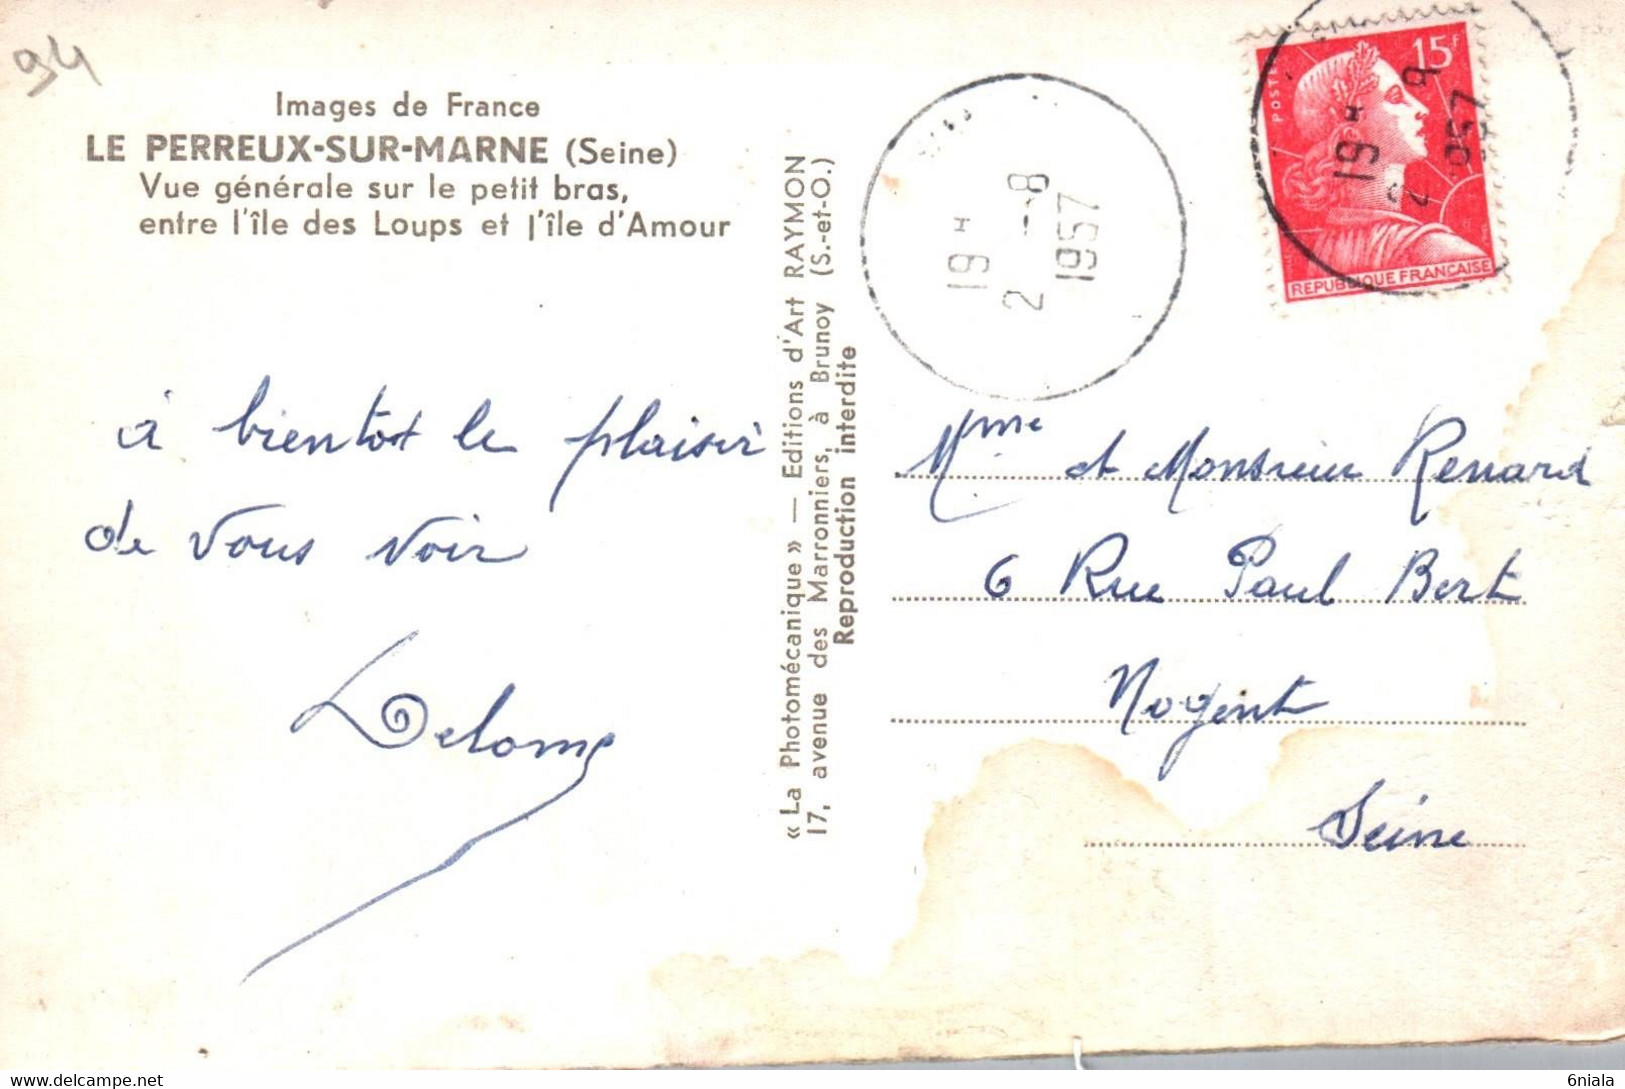 94
Images de France
LE PERREUX-SUR-MARNE (Seine)
Vue générale sur le petit bras,
entre l'île des Loups et l'île d'Amour
à bientot le plaisir
de vous voir
« La Photomécanique » — Editions d'Art RAYMON
17, avenue des Marronniers, à Brunoy (S.-et-O.)
Reproduction interdite
19 H
2 -8
1957
POSTES
15F
REPUBLIQUE FRANCAISE
19 H
2
1957
Mme et Monsieur Renard
6 Rue Paul Bert
Nogent
Seine
6niala